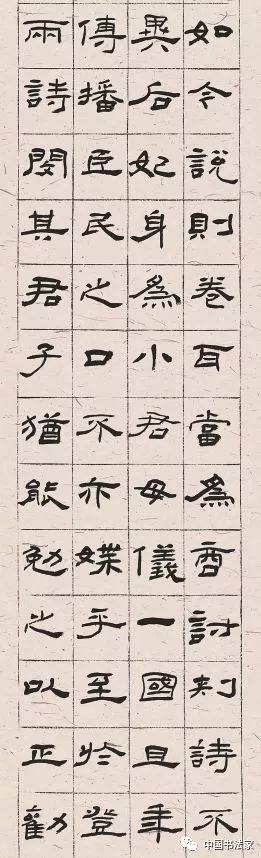 如令說則卷耳當爲商討刺詩不
異后妃身爲小君母儀一國且年
傳播臣民之口不亦媟乎至於登
兩詩閔其君子猶能勉之以正勸
中国书法家